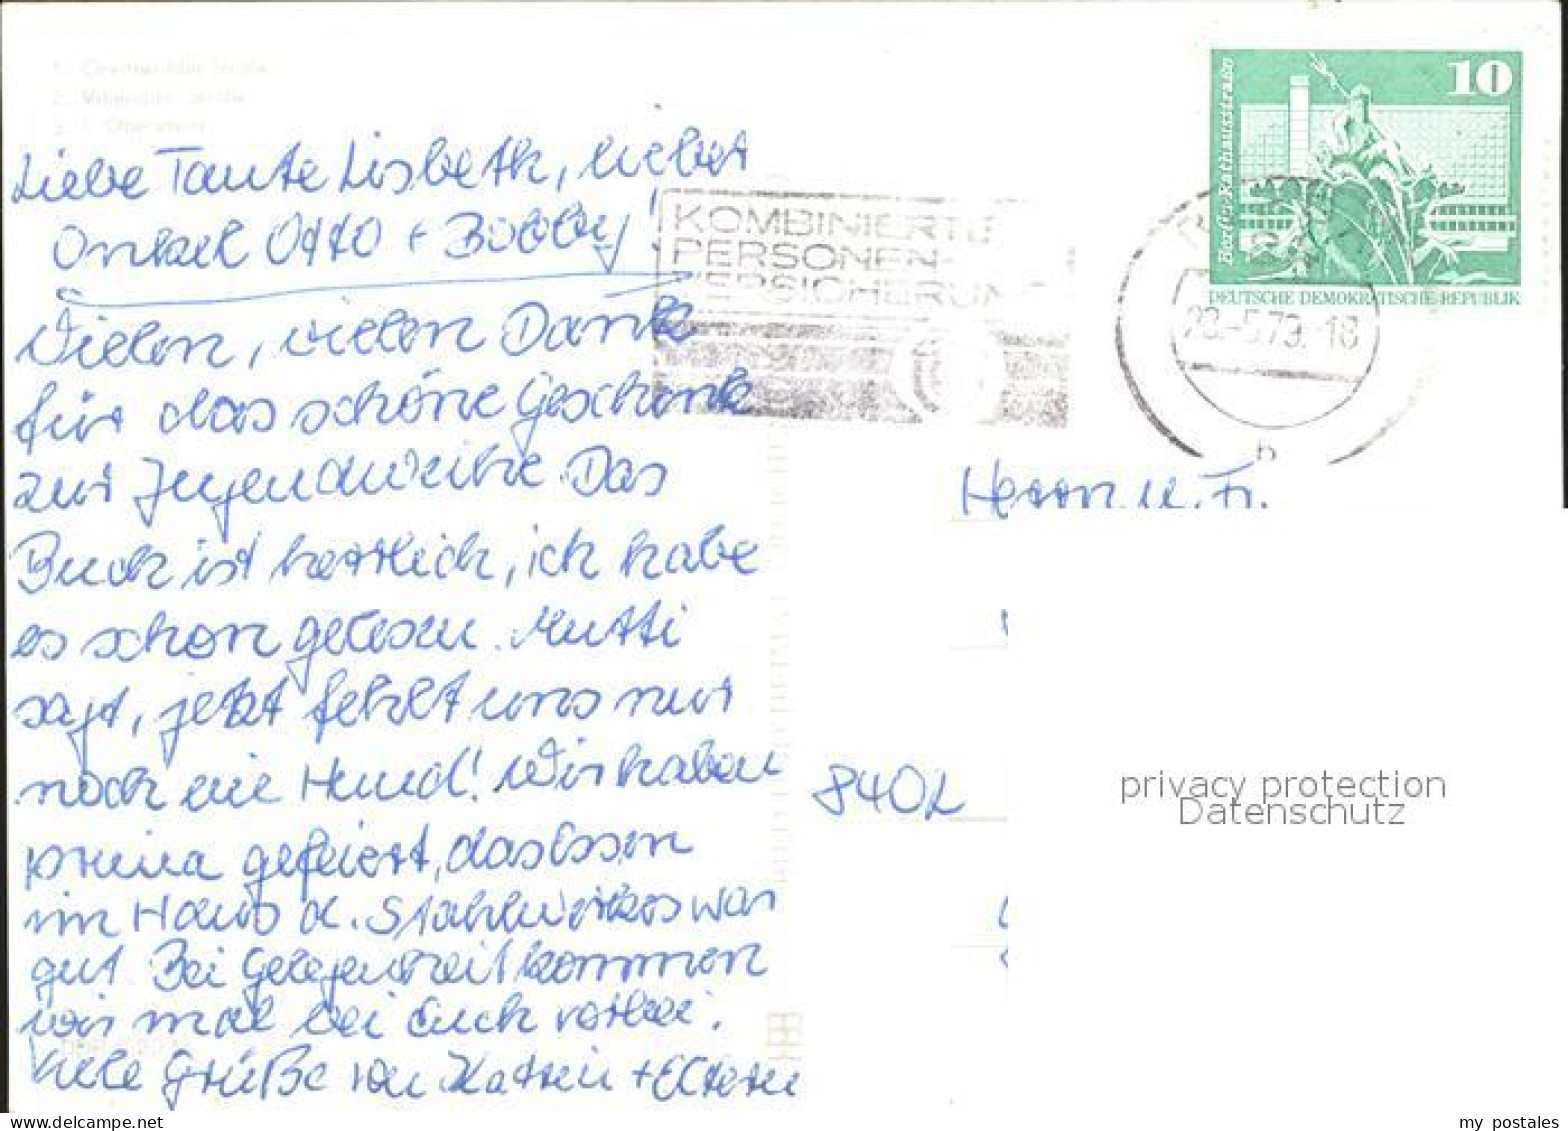 10
Berlin, Rathausstraße
DEUTSCHE DEMOKRATISCHE REPUBLIK
KOMBINIERTE
PERSONEN-
VERSICHERUNG
28.-5.79.-18
h
Liebe Tante Lisbeth, lieber
Onkel Otto + Bobby!
Vielen, vielen Dank
für das schöne Geschenk
zur Jugendweihe. Das
Buch ist herrlich, ich habe
es schon gelesen. Mutti
sagt, jetzt fehlt uns nur
noch ein Hund! Wir haben
prima gefeiert, das Essen
im Haus d. Stahlwerkes war
gut. Bei Gelegenheit kommen
wir mal bei Euch vorbei.
Viele Grüße von Katrin + Eltern
Herrn u. Fr.
8402
privacy protection
Datenschutz
my postales